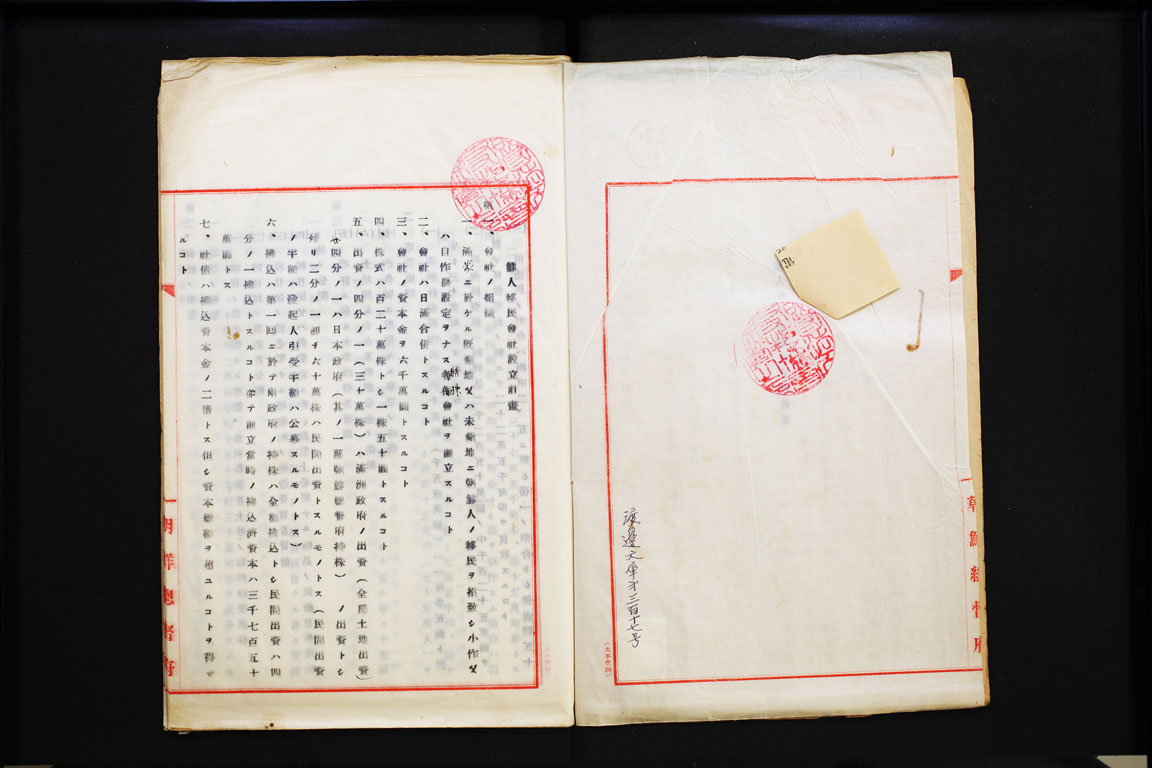 渡邊文庫第三百十七号
朝鮮總督府
鮮人移民會社設立計畫
第一、會社ノ組織
一、滿蒙ニ於ケル既墾地又ハ未墾地ニ朝鮮人ノ移民ヲ招致シ小作又
ハ自作農設定ヲナス特殊會社ヲ創立スルコト
二、會社ハ日滿合併トスルコト
三、會社ノ資本金ヲ六千萬圓トスルコト
四、株式ハ百二十萬株トシ一株五十圓トスルコト
五、出資ノ四分ノ一(三十萬株)ハ滿洲政府ノ出資(全部土地出資)
四分ノ一ハ日本政府(其ノ一部朝鮮總督府持株)ノ出資トシ
殘リ二分ノ一卽チ六十萬株ハ民間出資トスルモノトス(民間出資
ノ半額ハ發起人引受半額ハ公募スルモノトス)
六、拂込ハ第一回ニ於テ兩政府ノ持株ハ全額拂込トシ民間出資ハ四
分ノ一拂込トスルコト從テ創立當時ノ拂込濟資本ハ三千七百五十
萬圓トス
七、社債ハ拂込資本金ノ二倍トス但シ資本總額ヲ超ユルコトヲ得サ
ルコト
朝鮮總督府